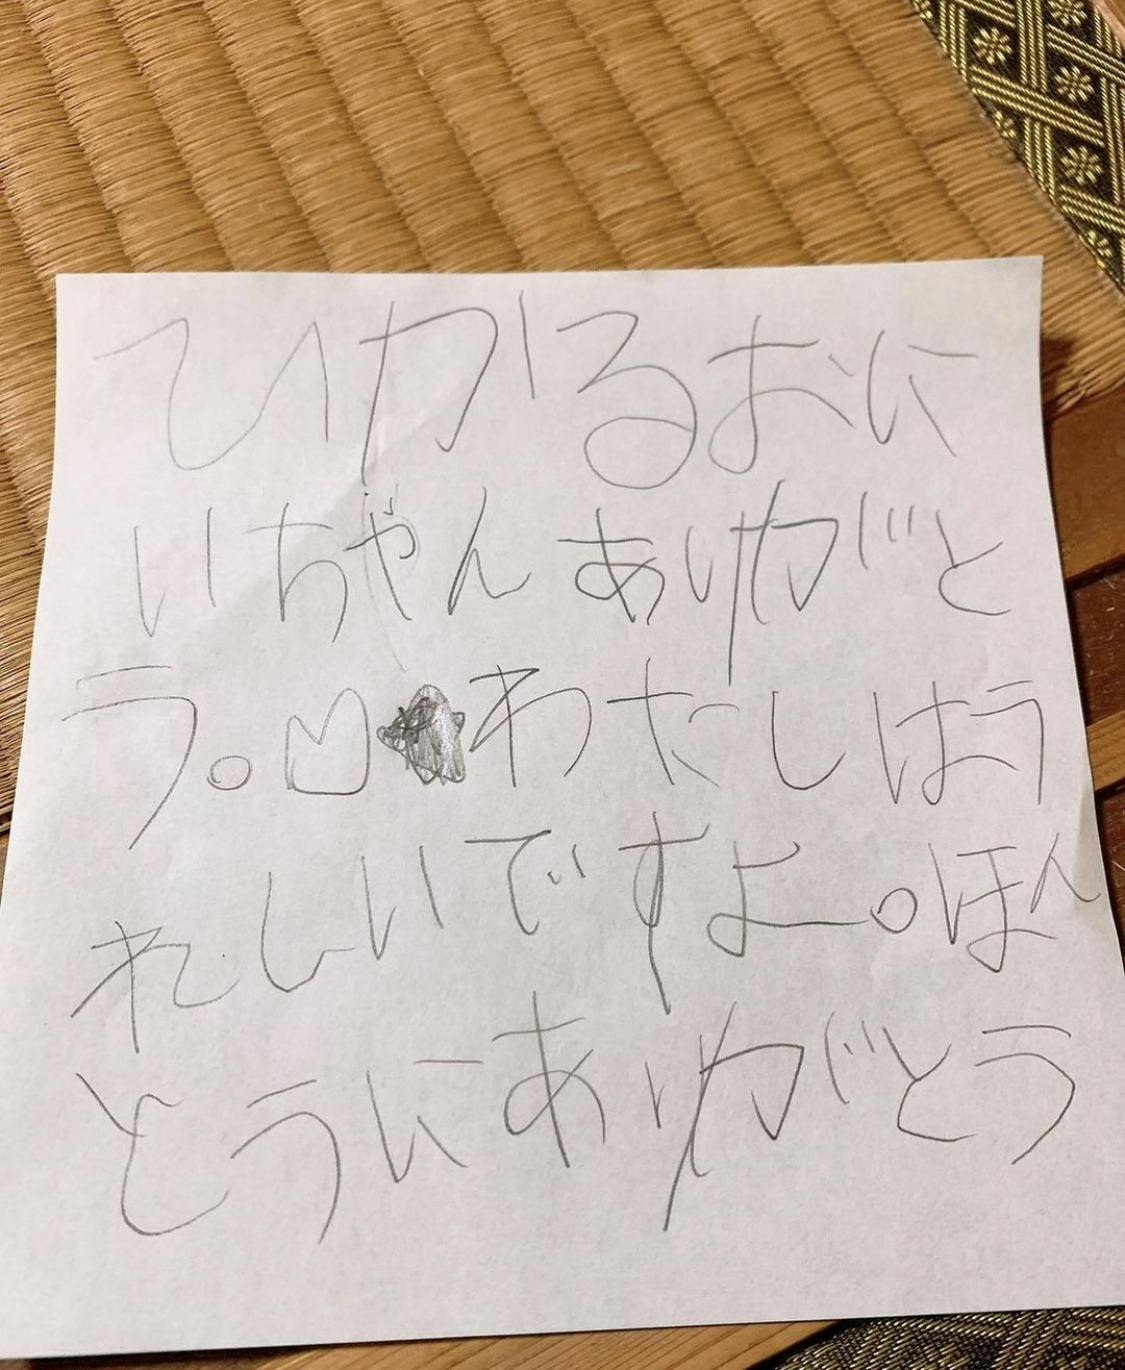 ひかるおに
いちゃんありがと
う。♡わたしはう
れしいですよ。ほん
とうにありがとう